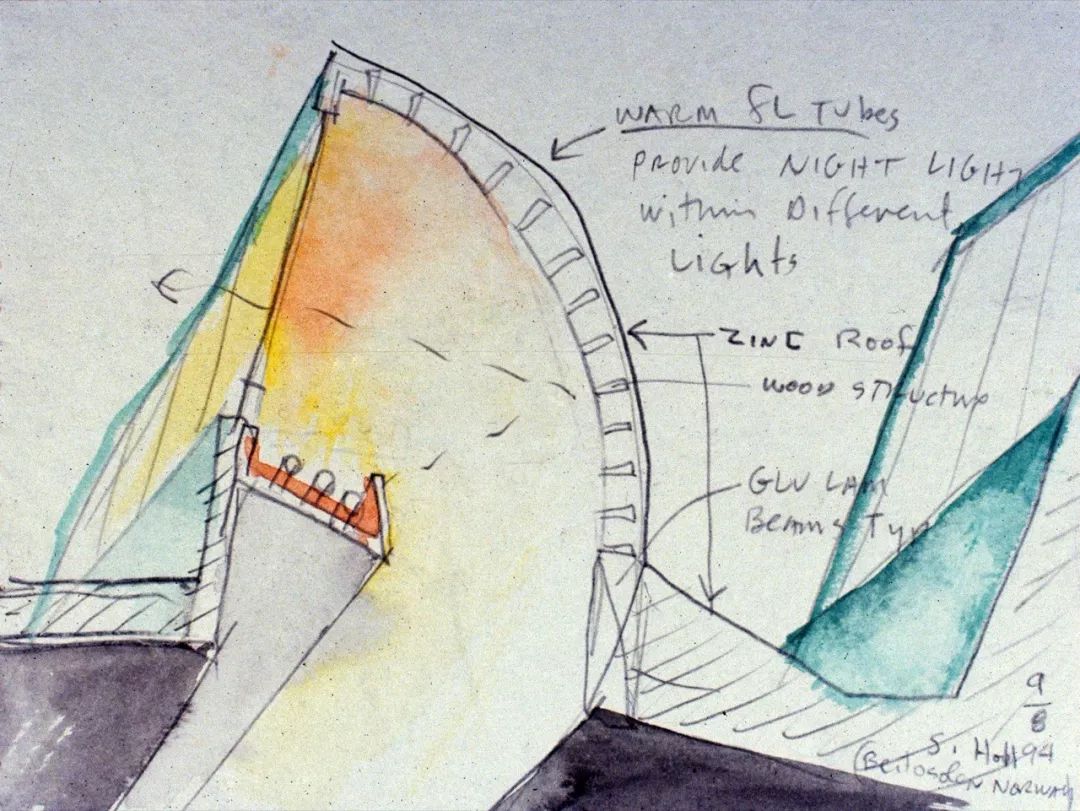 WARM FL TUBES
PROVIDE NIGHT LIGHT
within Different
LIGHTS
ZINC ROOF
WOOD STRUCTURE
GLU LAM
BEAMS TYP
9
8
S. Holl 94
NORWAY